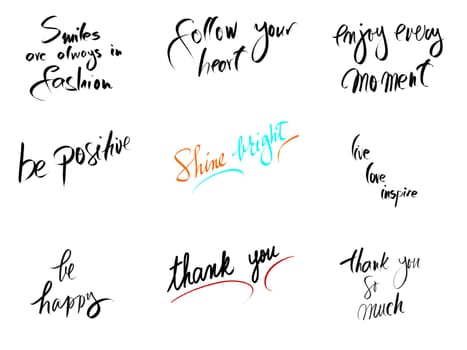 Smiles
are always in
fashion
follow your
heart
enjoy every
moment
be positive
Shine bright
live
love
inspire
be
happy
thank you
thank you
so
much